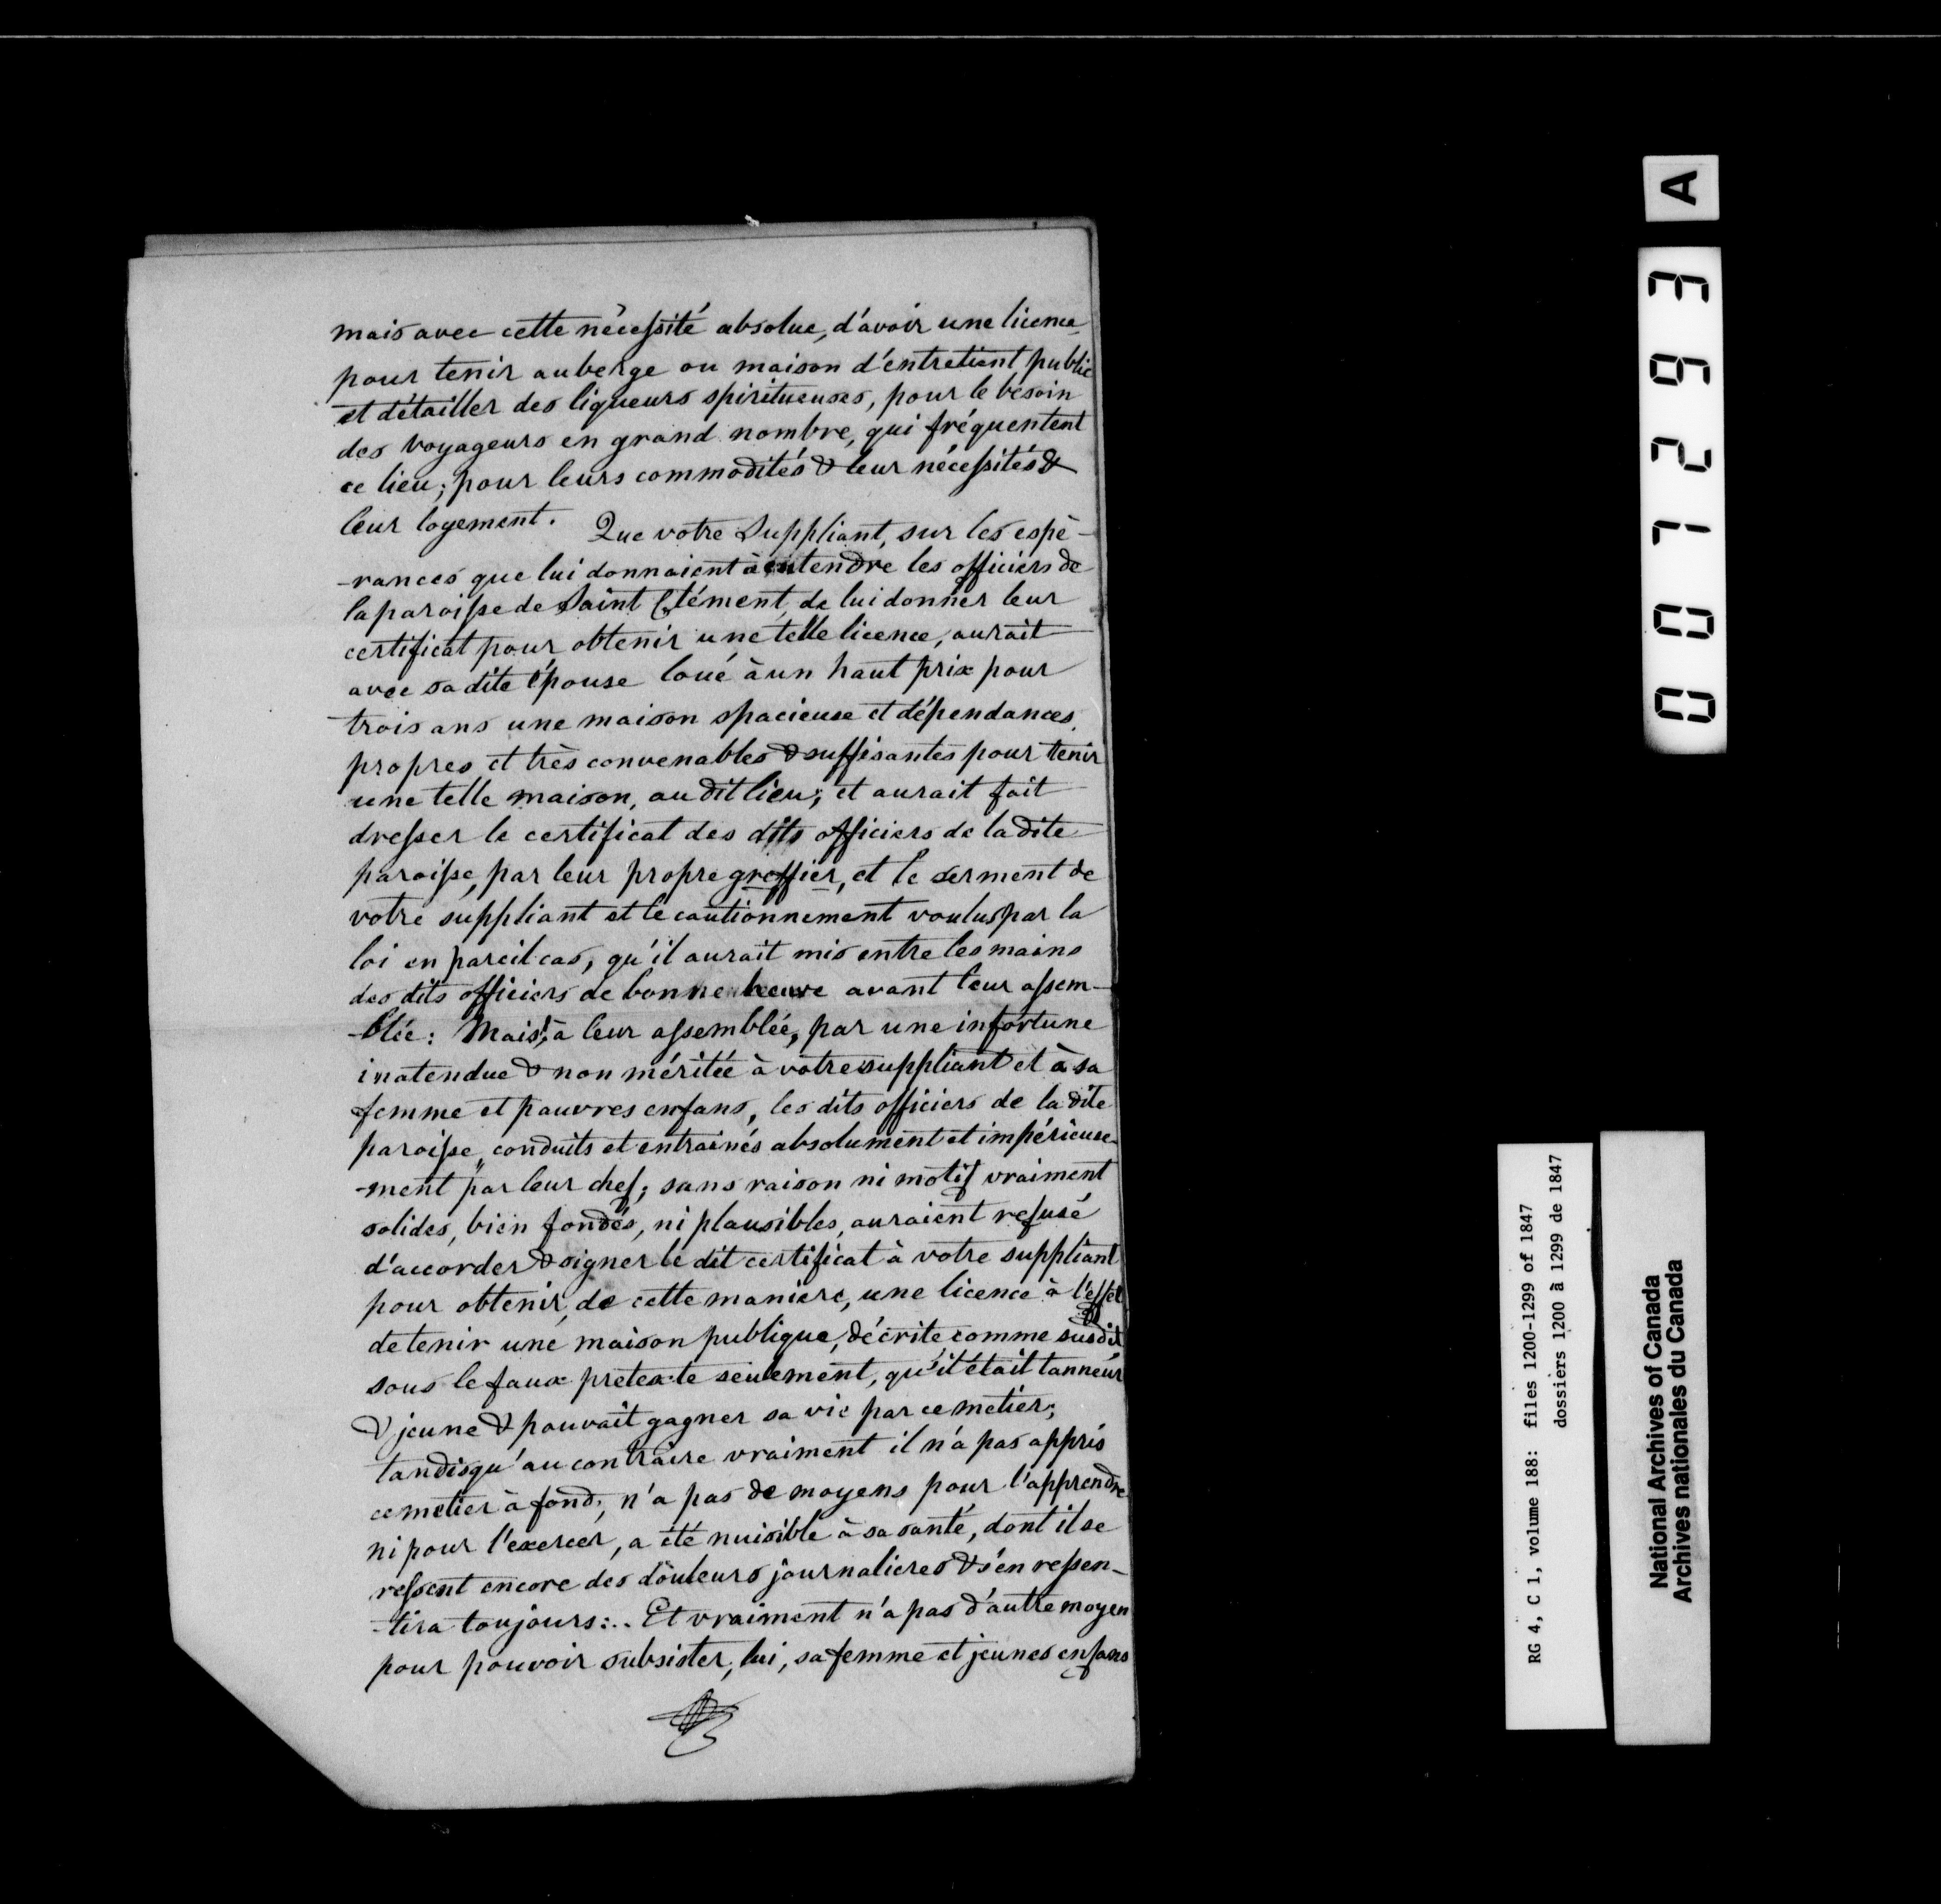 mais avec cette nécessité absolue, d'avoir une licence
pour tenir auberge ou maison d'entretient public
et détailler des liqueurs spiritueuses, pour le besoin
des voyageurs en grand nombre, qui fréquentent
ce lieu; pour leurs commodités & leur nécessités &
leur logement. Que votre Suppliant, sur les espé-
-rances que lui donnaient à entendre les officiers de
la paroisse de Saint Clément, de lui donner leur
certificat pour obtenir une telle licence, aurait
avec sa dite épouse loué à un haut prix pour
trois ans une maison spacieuse et dépendances
propres et très convenables & suffisantes pour tenir
une telle maison, au dit lieu; et aurait fait
dresser le certificat des dits officiers de la dite
paroisse, par leur propre greffier, et le serment de
votre suppliant et le cautionnement voulus par la
loi en pareil cas, qu'il aurait mis entre les mains
des dits officiers de bonne heure avant leur assem-
-blée: Mais, à leur assemblée, par une infortune
inatendue & non méritée à votre suppliant et à sa
femme et pauvres enfans, les dits officiers de la dite
paroisse, conduits et entrainés absolument et impérieuse-
-ment par leur chef; sans raison ni motif vraiment
solides, bien fondés, ni plausibles, auraient refusé
d'accorder & signer le dit certificat à votre suppliant
pour obtenir, de cette maniere, une licence à l'effet
de tenir une maison publique, décrite comme susdit,
sous le faux prétexte seulement, qu'il était tanneur
& jeune & pouvait gagner sa vie par ce metier;
tandisqu'au contraire vraiment il n'a pas appris
ce metier à fond, n'a pas de moyens pour l'apprendre
ni pour l'exercer, a été nuisible à sa santé, dont il se
ressent encore des douleurs journalieres & s'en ressen-
-tira toujours:.. Et vraiment n'a pas d'autre moyen
pour pouvoir subsister, lui, sa femme et jeunes enfans
A
007293
RG 4, C 1, volume 188: files 1200-1299 of 1847
dossiers 1200 à 1299 de 1847
National Archives of Canada
Archives nationales du Canada